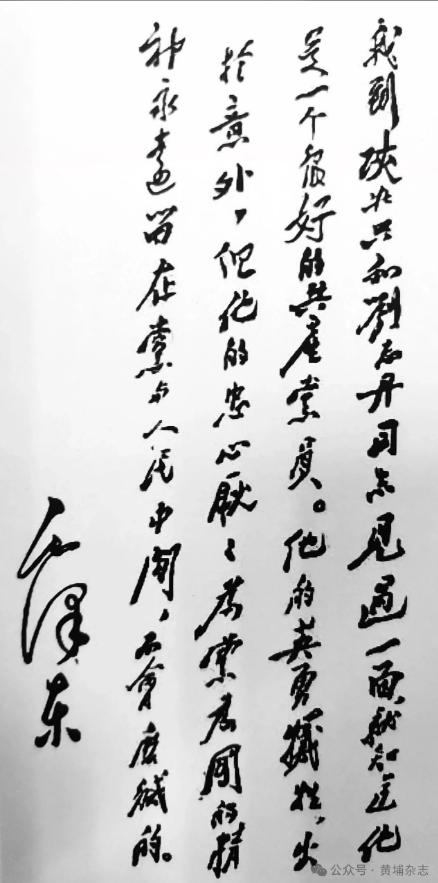 我到陕北只和劉志丹同志見過一面，就知道他
是一个很好的共產党員。他的英勇犧牲，出
於意外，但他的忠心耿々為党為国的精
神永遠留在党与人民中間，不會磨滅的。
毛澤东
公众号·黄埔杂志